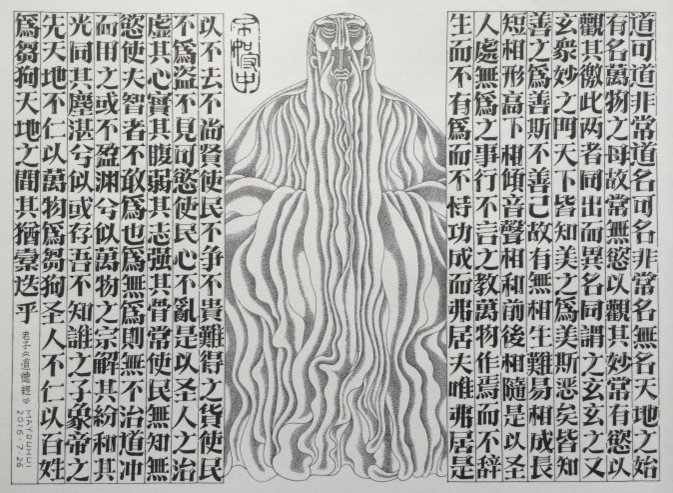 道可道非常道名可名非常名無名天地之始
有名萬物之母故常無慾以觀其妙常有慾以
觀其徼此两者同出而異名同謂之玄玄之又
玄衆妙之門天下皆知美之爲美斯恶矣皆知
善之爲善斯不善己故有無相生難易相成長
短相形高下相傾音聲相和前後相隨是以圣
人處無爲之事行不言之教萬物作焉而不辞
生而不有爲而不恃功成而弗居夫唯弗居是
以不去不尚賢使民不争不貴難得之货使民
不爲盗不見可慾使民心不亂是以圣人之治
虚其心實其腹弱其志强其骨常使民無知無
慾使夫智者不敢爲也爲無爲則無不治道冲
而用之或不盈渊兮似萬物之宗解其紛和其
光同其塵湛兮似或存吾不知誰之子象帝之
先天地不仁以萬物爲芻狗圣人不仁以百姓
爲芻狗天地之間其猶橐迭乎
老子《道德經》MAYOUHUI
2016·7·26